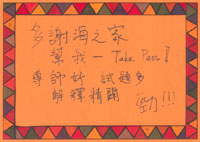 多謝海之家
幫我一 Take Pass!
導師好 試題多
解釋精闢 勁!!!